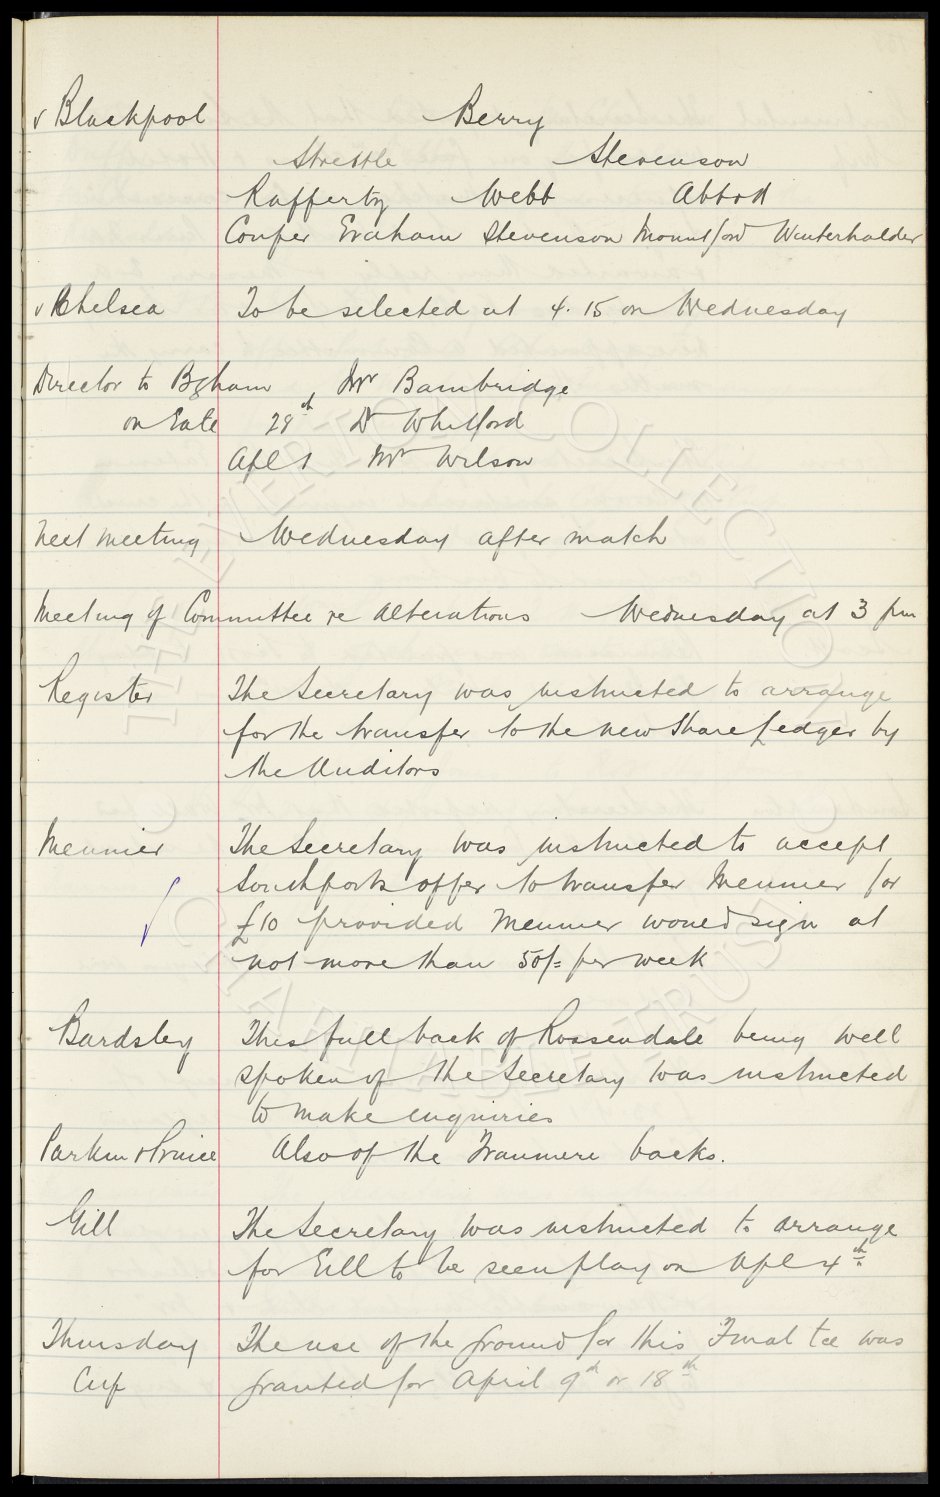 v Blackpool Berry
Strettle Stevenson
Rafferty Webb Abbott
Couper Graham Stevenson Mountford Winterhalder
v Chelsea To be selected at 4.15 on Wednesday
Director to Bgham Mr Bambridge
on Sat 28th Dr Whitford
Apl 1 Mr Wilson
Next meeting Wednesday after match
Meeting of Committee re Alterations Wednesday at 3 pm
Register The Secretary was instructed to arrange
for the transfer to the new Share Ledger by
the Auditors
Meunier The Secretary was instructed to accept
Southports offer to transfer Meunier for
£10 provided Meunier would sign at
not more than 50/= per week
Bardsley This full back of Rossendale being well
spoken of the Secretary was instructed
to make enquiries
Parkin & Prince Also of the Tranmere backs.
Gill The Secretary was instructed to arrange
for Gill to be seen play on Apl 4th
Thursday The use of the ground for this Final tie was
Cup granted for April 9th or 18th
THE EVERTON COLLECTION
CHARITABLE TRUST